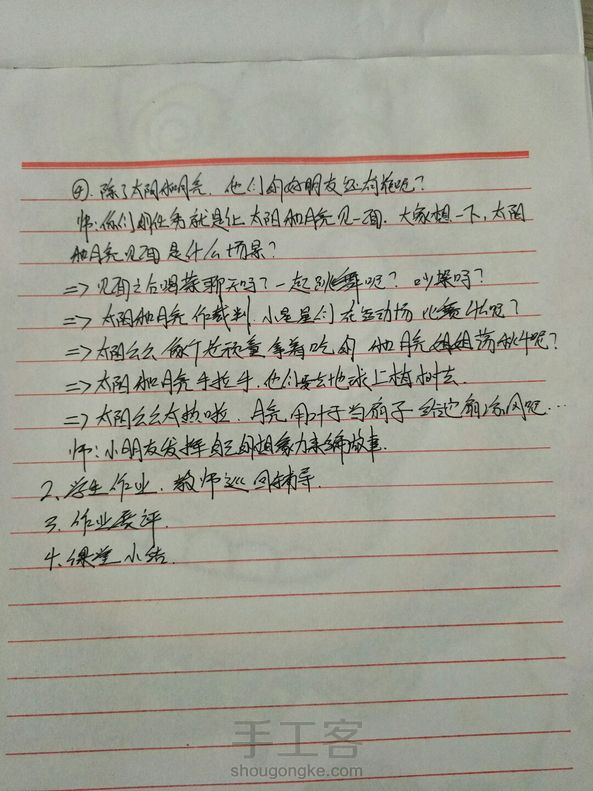 ④. 除了太阳和月亮, 他们的好朋友还有谁呢?
师: 你们的任务就是让太阳和月亮见一面. 大家想一下, 太阳
和月亮见面是什么场景?
=> 见面之后喝茶聊天吗? 一起跳舞呢? 吵架吗?
=> 太阳和月亮作裁判, 小星星们在运动场比赛呢?
=> 太阳公公做个老顽童拿着吃的 和月亮姐姐荡秋千呢?
=> 太阳和月亮手拉手, 他们要去地球上植树去.
=> 太阳公公太热啦, 月亮用叶子当扇子给他扇扇风呢…
师: 小朋友发挥自己的想象力来编故事.
2、学生作业, 教师巡回辅导.
3、作业展评.
4、课堂小结.
手工客
shougongke.com